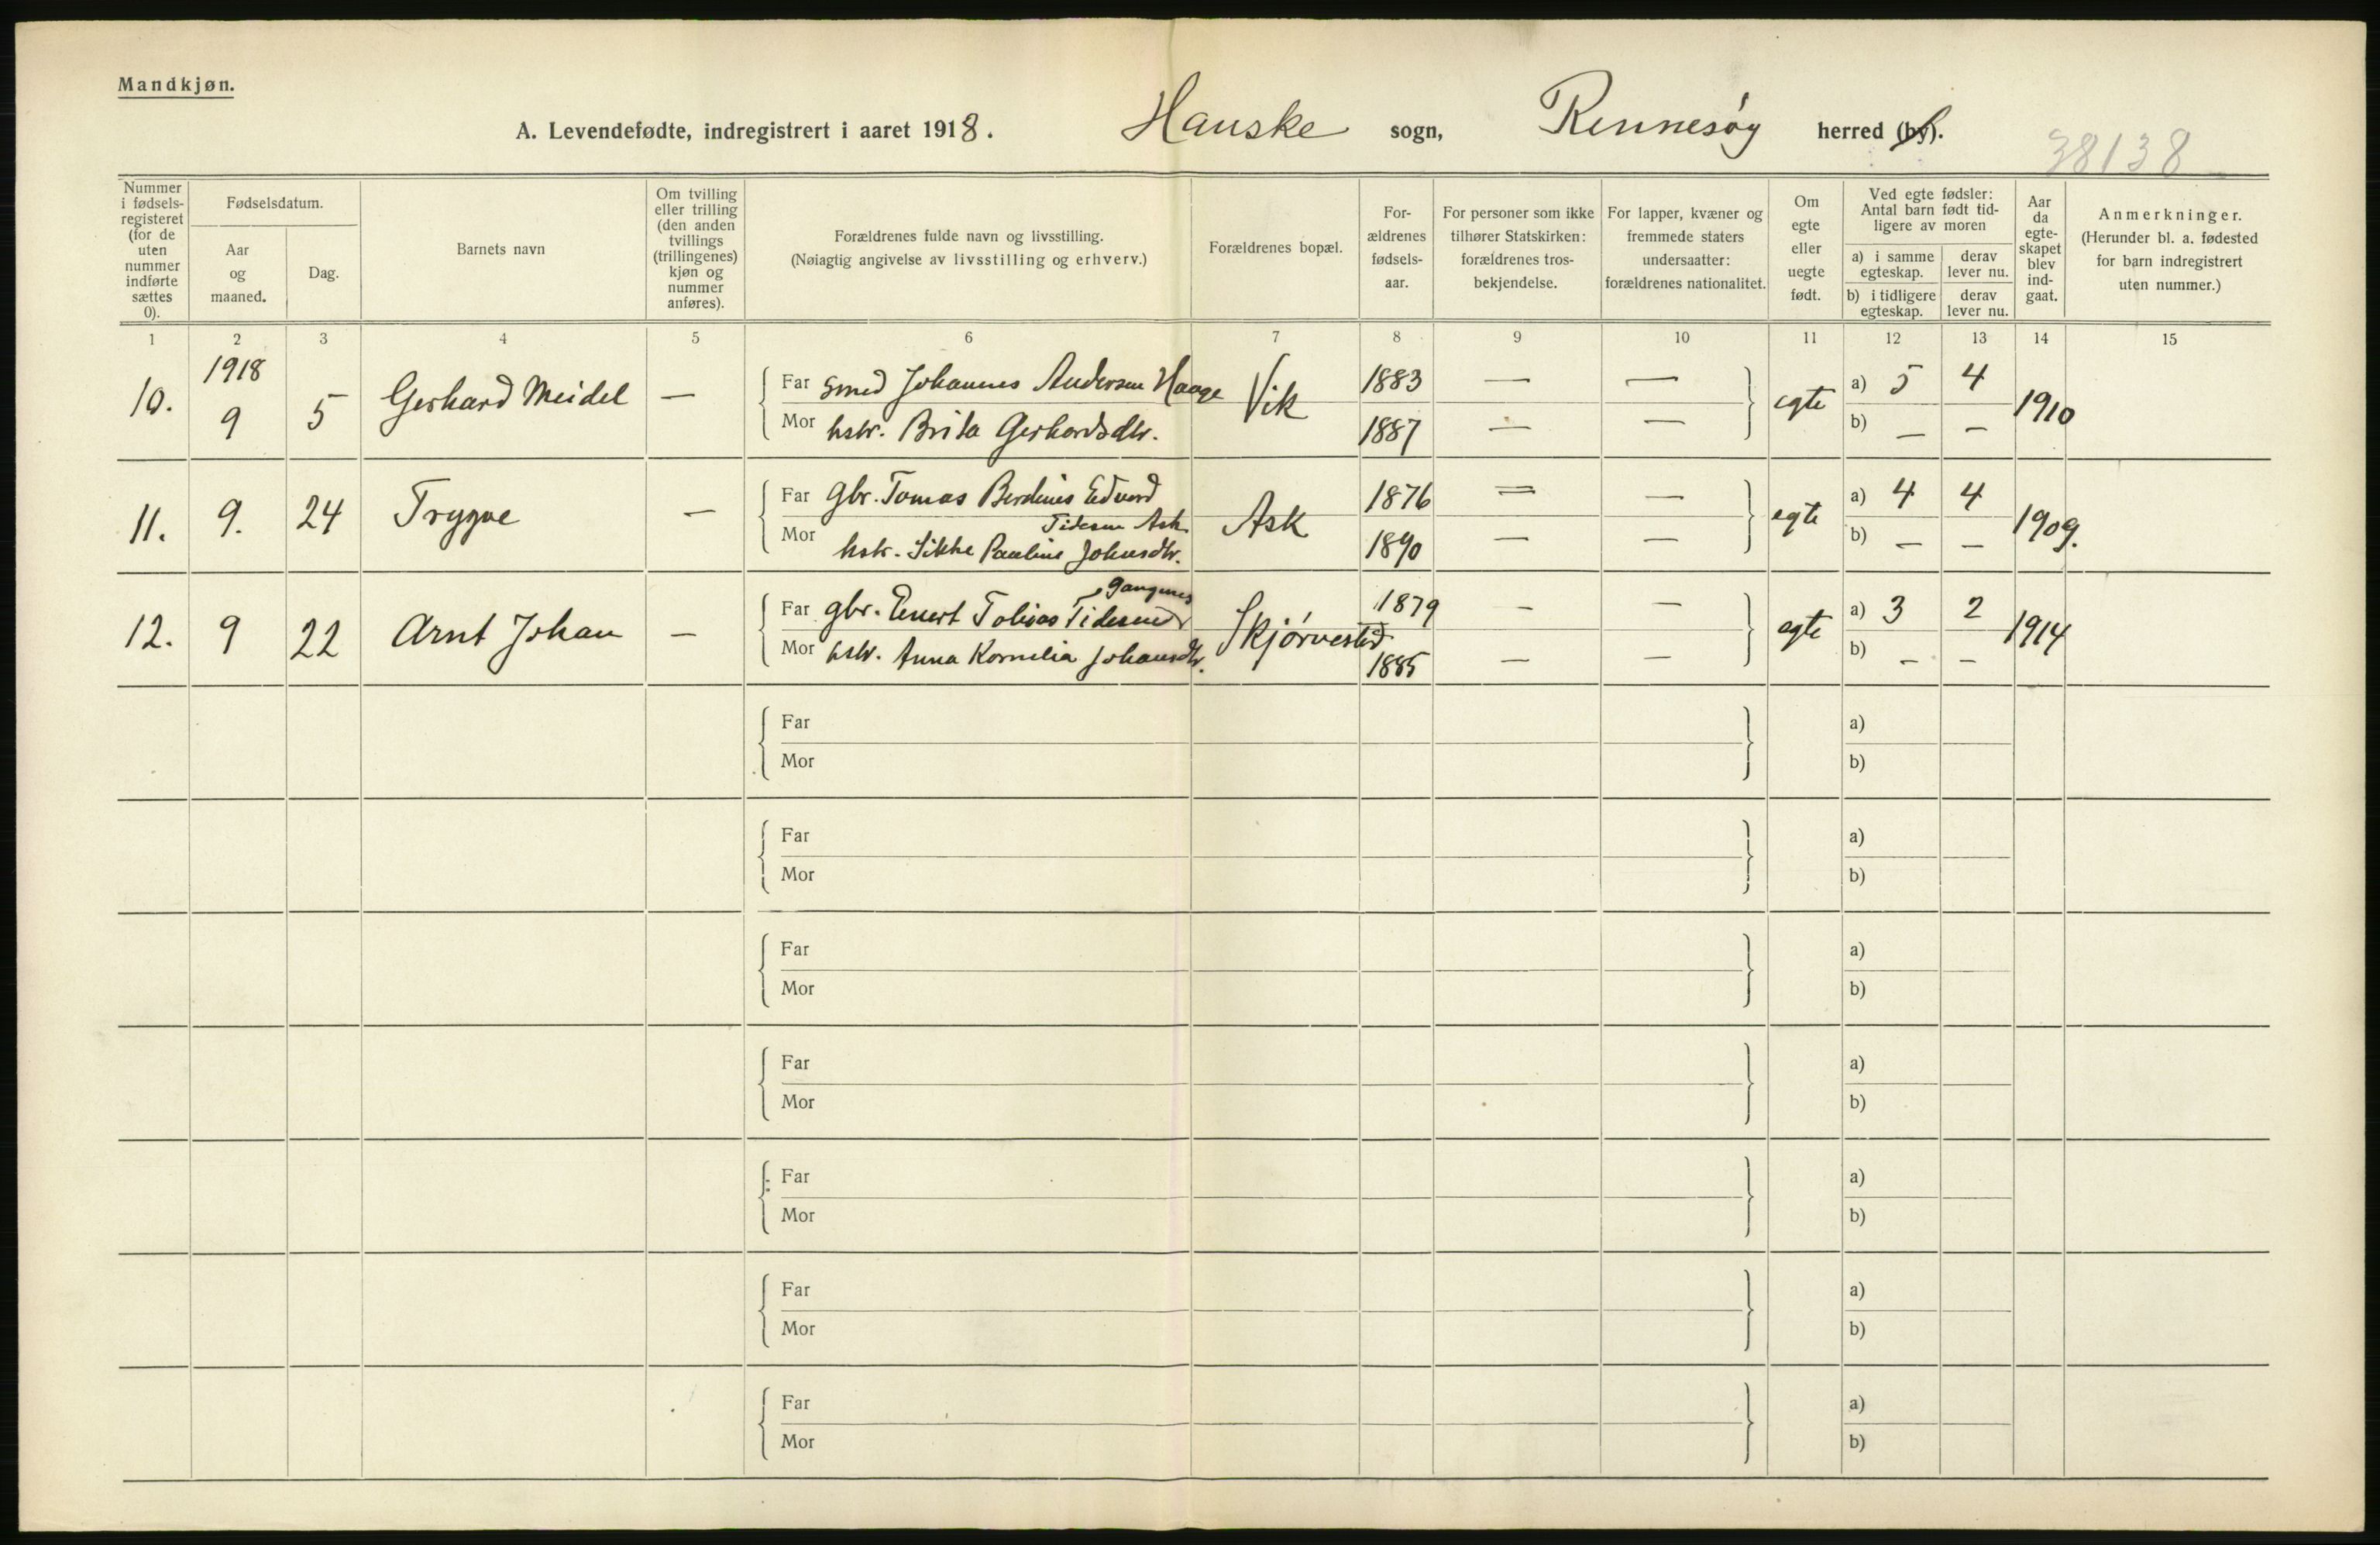 Mandkjøn.
A. Levendefødte, indregistrert i aaret 1918. Hauske sogn, Rennesøy herred (by).
38138
Nummer i fødsels-registeret (for de uten nummer indførte sættes 0).
Fødselsdatum.
Aar og maaned.
Dag.
Barnets navn
Om tvilling eller trilling (den anden tvillings (trillingenes) kjøn og nummer anføres).
Forældrenes fulde navn og livsstilling.
(Nøiagtig angivelse av livsstilling og erhverv.)
Forældrenes bopæl.
For-ældrenes fødsels-aar.
For personer som ikke tilhører Statskirken: forældrenes tros-bekjendelse.
For lapper, kvæner og fremmede staters undersaatter: forældrenes nationalitet.
Om egte eller uegte født.
Ved egte fødsler: Antal barn født tid-ligere av moren
a) i samme egteskap.
derav lever nu.
b) i tidligere egteskap.
derav lever nu.
Aar da egte-skapet blev ind-gaat.
Anmerkninger.
(Herunder bl. a. fødested for barn indregistrert uten nummer.)
1 2 3 4 5 6 7 8 9 10 11 12 13 14 15
10. 1918 9 5 Gerhard Meidel —
Far Smed Johannes Andersen Hauge Vik 1883 — — egte a) 5 4 1910
Mor hstr. Brita Gerhardsdtr. 1887 — — b) — —
11. 9. 24 Trygve —
Far gbr. Tomas Berdines Edvard Tidesen Ask Ask 1876 = — egte a) 4 4 1909.
Mor hstr. Sikke Pauline Johnsdtr. 1890 — — b) — —
12. 9 22 Arnt Johan —
Far gbr. Enert Tobias Tidesen Skjørvestad 1879 — — egte a) 3 2 1914
Mor hstr. Anna Kornelia Johansdtr. 1885 — — b) — —
Far a)
Mor b)
Far a)
Mor b)
Far a)
Mor b)
Far a)
Mor b)
Far a)
Mor b)
Far a)
Mor b)
Far a)
Mor b)